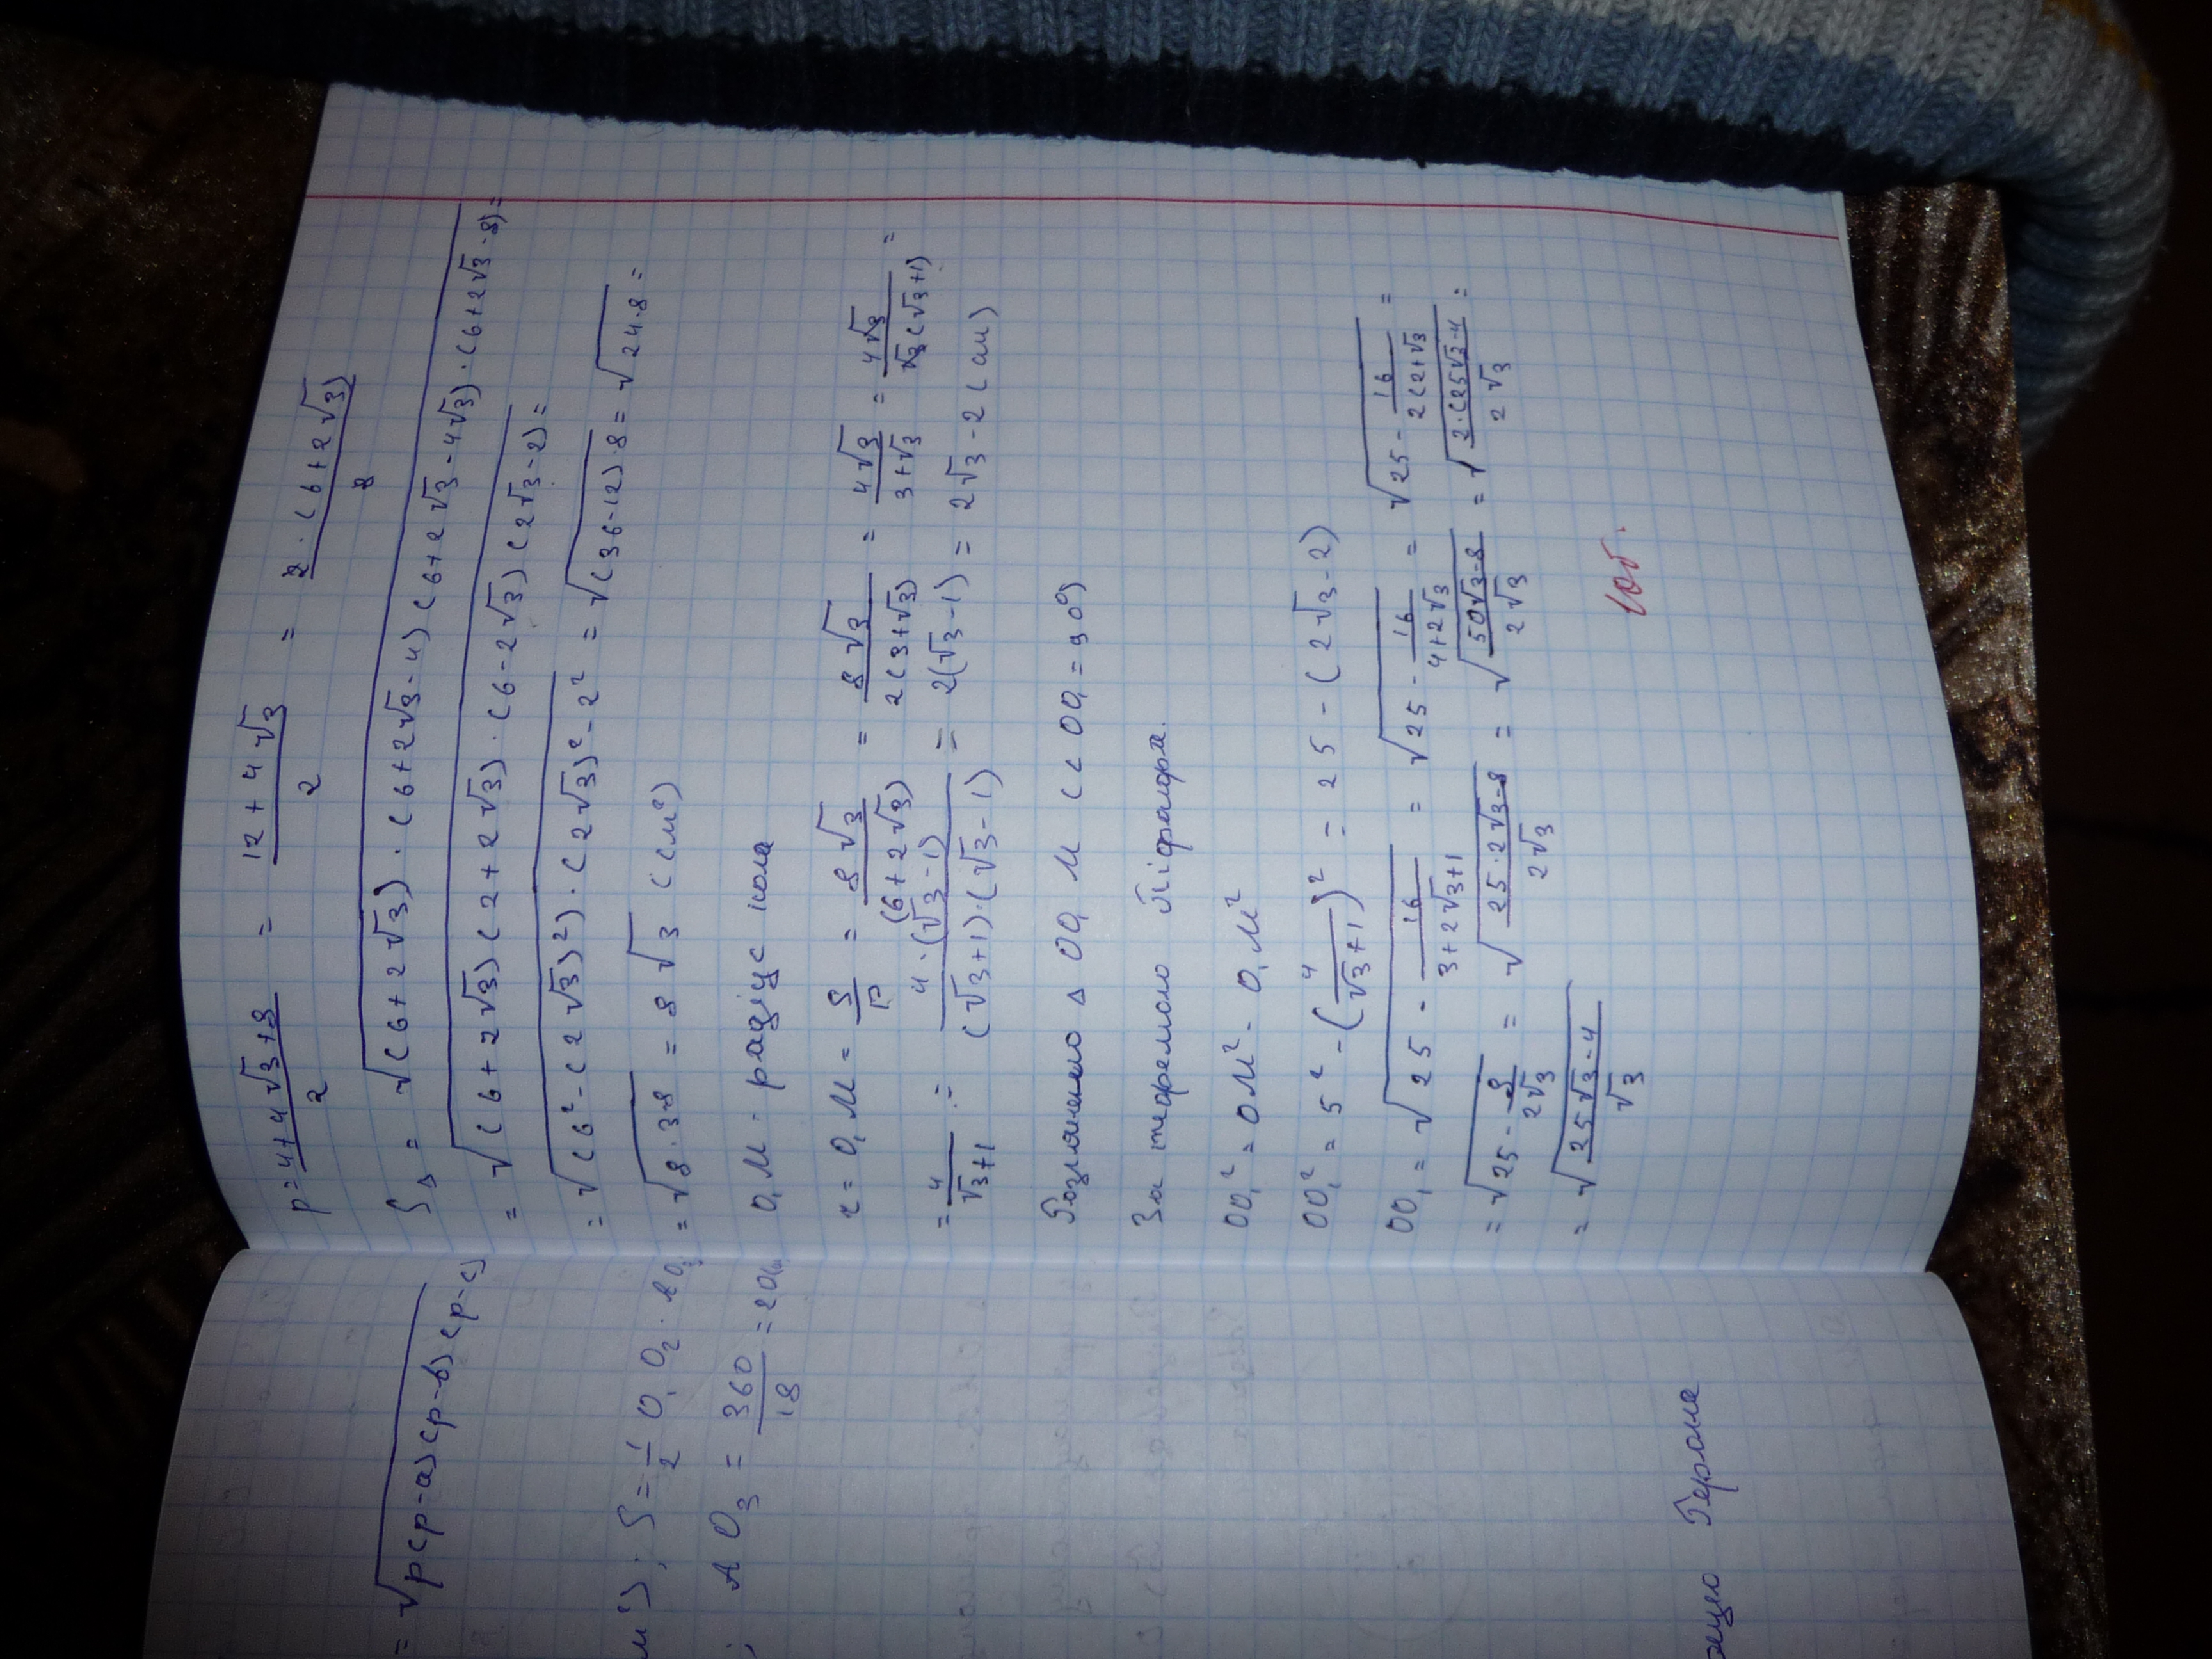 = √(p(p-a)(p-b)(p-c)
м²); S = 1/2 O₁O₂ ·
; AO₃ = 360/18 = 20(
Герона
p = (4+4√3+8)/2 = (12+4√3)/2 = (2·(6+2√3))/2
S△ = √((6+2√3)·(6+2√3-4)(6+2√3-4√3)·(6+2√3-8)) =
= √((6+2√3)(2+2√3)·(6-2√3)(2√3-2)) =
= √((6²-(2√3)²)·(2√3)²-2²) = √((36-12)·8) = √(24·8) =
= √(8·3·8) = 8√3 (см²)
O₁M - радіус кола
r = O₁M = S/p = 8√3/(6+2√3) = 8√3/(2(3+√3)) = 4√3/(3+√3) = 4√3/(√3(√3+1)) =
= 4/(√3+1) = (4·(√3-1))/((√3+1)·(√3-1)) = 2(√3-1) = 2√3-2 (см)
Розглянемо △ OO₁M (∠OO₁=90°)
За теоремою Піфагора.
OO₁² = OM² - O₁M²
OO₁² = 5² - (4/(√3+1))² = 25 - (2√3-2)
OO₁ = √(25 - 16/(3+2√3+1)) = √(25 - 16/(4+2√3)) = √(25 - 16/(2(2+√3)) =
= √(25 - 8/(2√3)) = √((25·2√3-8)/(2√3)) = √((50√3-8)/(2√3)) = √((2·(25√3-4)/(2√3)) =
= √((25√3-4)/√3)
10б.